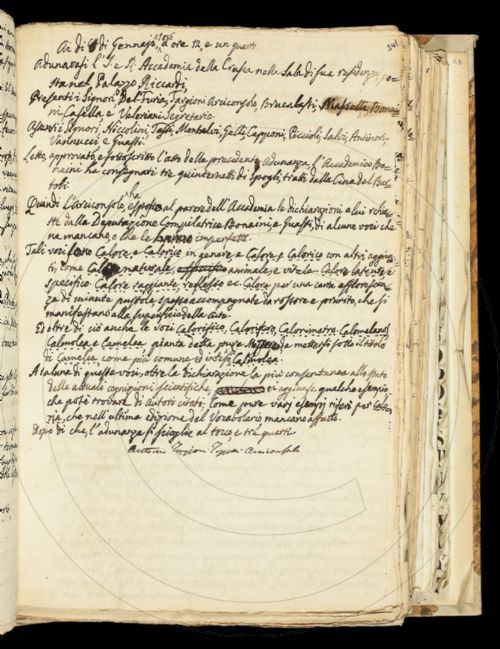 Ai dì di Gennajo, a ore 12, e un quarto
Adunatasi l'I. e R. Accademia della Crusca nella Sala di sua residenza, po-
sta nel Palazzo Riccardi,
Presenti i Signori Del Furia, Targioni Arciconsolo, Brucalassi, Masselli, Bonai-
ni, Casella e Valeriani Segretario.
Assenti i Signori, Niccolini, Tassi, Montalvi, Gelli, Capponi, Poccioli, Salvi, Antinori,
Vannucci e Guasti.
Letto, approvato, e sottoscritto l'atto della precedente Adunanza, l'Accademico Bo-
naini ha consegnati tre quinternetti di Spogli, tratti dalla Cina del Bar-
toli.
Quindi l'Arciconsolo, ha esposte al parere dell'Accademia le dichiarazioni a lui richie-
ste dalla Deputazione Compilatrice Bonaini, e Guasti, di alcune voci che
na mancano, o che le imperfette.
Tali voci sono Calore, e Calorico in genere, e Calore, e Calorico con altri aggiun-
ti, come Calore naturale, animale, e vitale. Calore latente e
specifico. Calore raggiante, reflesso ec. Calore per una certa efflorescen-
za di minute pustole, spesso accompagnate da rossore e prurito, che si
manifestano alla superficie della cute.
Ed oltre di ciò anche le voci Calorifico, Calorifero, Calorimetro, Calomelanos
Calmolea e Camelea pianta detta pure da mettersi sotto il titolo
di Camelea, come più comune ed intesa Calmolea.
A talune di queste voci, oltre la dichiarazione la più consentanea allo stato
delle attuali cognizioni scientifiche, vi aggiunse qualche esempio,
che potè trovare di Autori citati; come pure varj esempj riferì per Calo-
ria, che nell'ultima edizione del Vocabolario mancano affatto.
Dopo di che, l'adunanza si sciolse al tocco, e tre quarti.
Antonio Targioni Tozzetti Arciconsolo